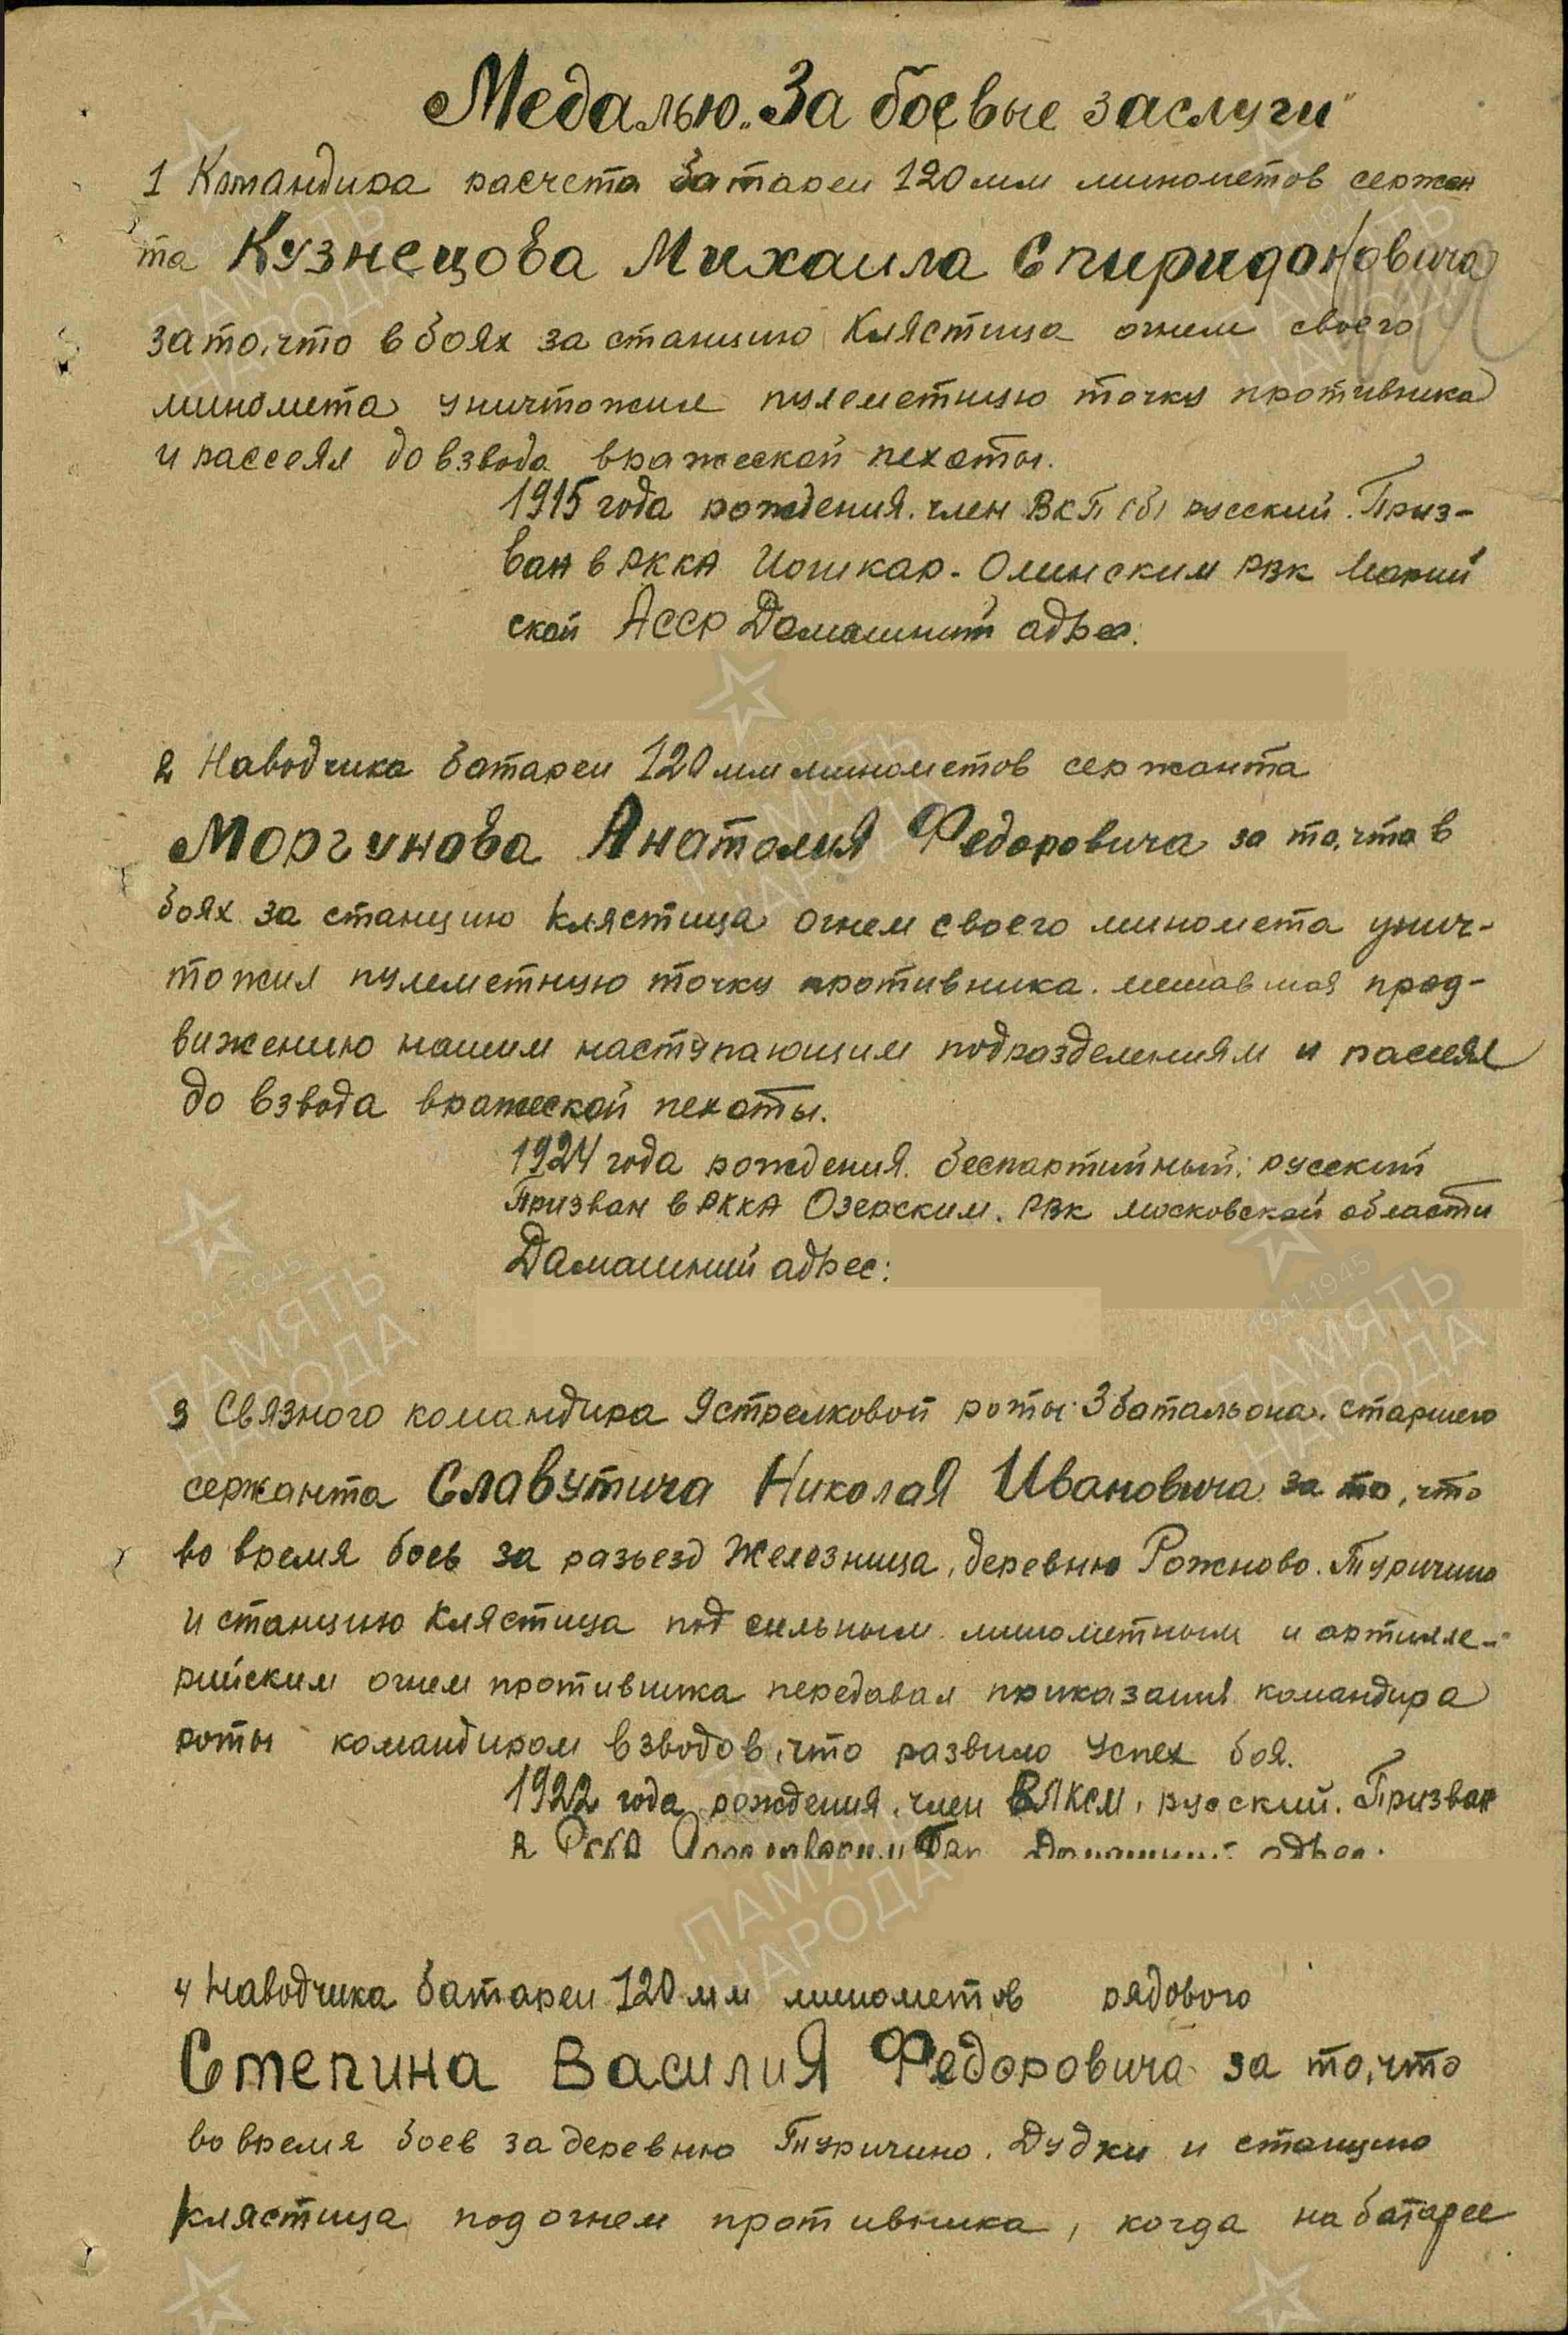 Медалью „За боевые заслуги"
1 Командира расчета батареи 120 мм минометов сержан
та Кузнецова Михаила Спиридоновича
за то, что в боях за станцию Клястица огнем своего
миномета уничтожил пулеметную точку противника
и рассеял до взвода вражеской пехоты.
1915 года рождения. член ВКП(б) русский. Приз-
ван в РККА Йошкар-Олинским РВК Марий
ской АССР Домашний адрес:
2 Наводчика батареи 120 мм минометов сержанта
Моргунова Анатолия Федоровича за то, что в
боях за станцию Клястица огнем своего миномета унич-
тожил пулеметную точку противника. мешавшая прод-
вижению нашим наступающим подразделениям и рассеял
до взвода вражеской пехоты.
1924 года рождения. беспартийный, русский
Призван в РККА Озерским. РВК Московской области
Домашний адрес:
3 Связного командира 9 стрелковой роты 3 батальона. старшего
сержанта Славутича Николая Ивановича за то, что
во время боев за разъезд Железница, деревню Рожново. Туричино
и станцию Клястица под сильным минометным и артилле-
рийским огнем противника передавал приказания командира
роты командиром взводов, что развило успех боя.
1922 года рождения, член ВЛКСМ, русский. Призван
в РККА Домашний адрес:
4 Наводчика батареи 120 мм минометов рядового
Степина Василия Федоровича за то, что
во время боев за деревню Туричино. Дудки и станцию
Клястица под огнем противника, когда на батарее
ПАМЯТЬ
НАРОДА
1941-1945